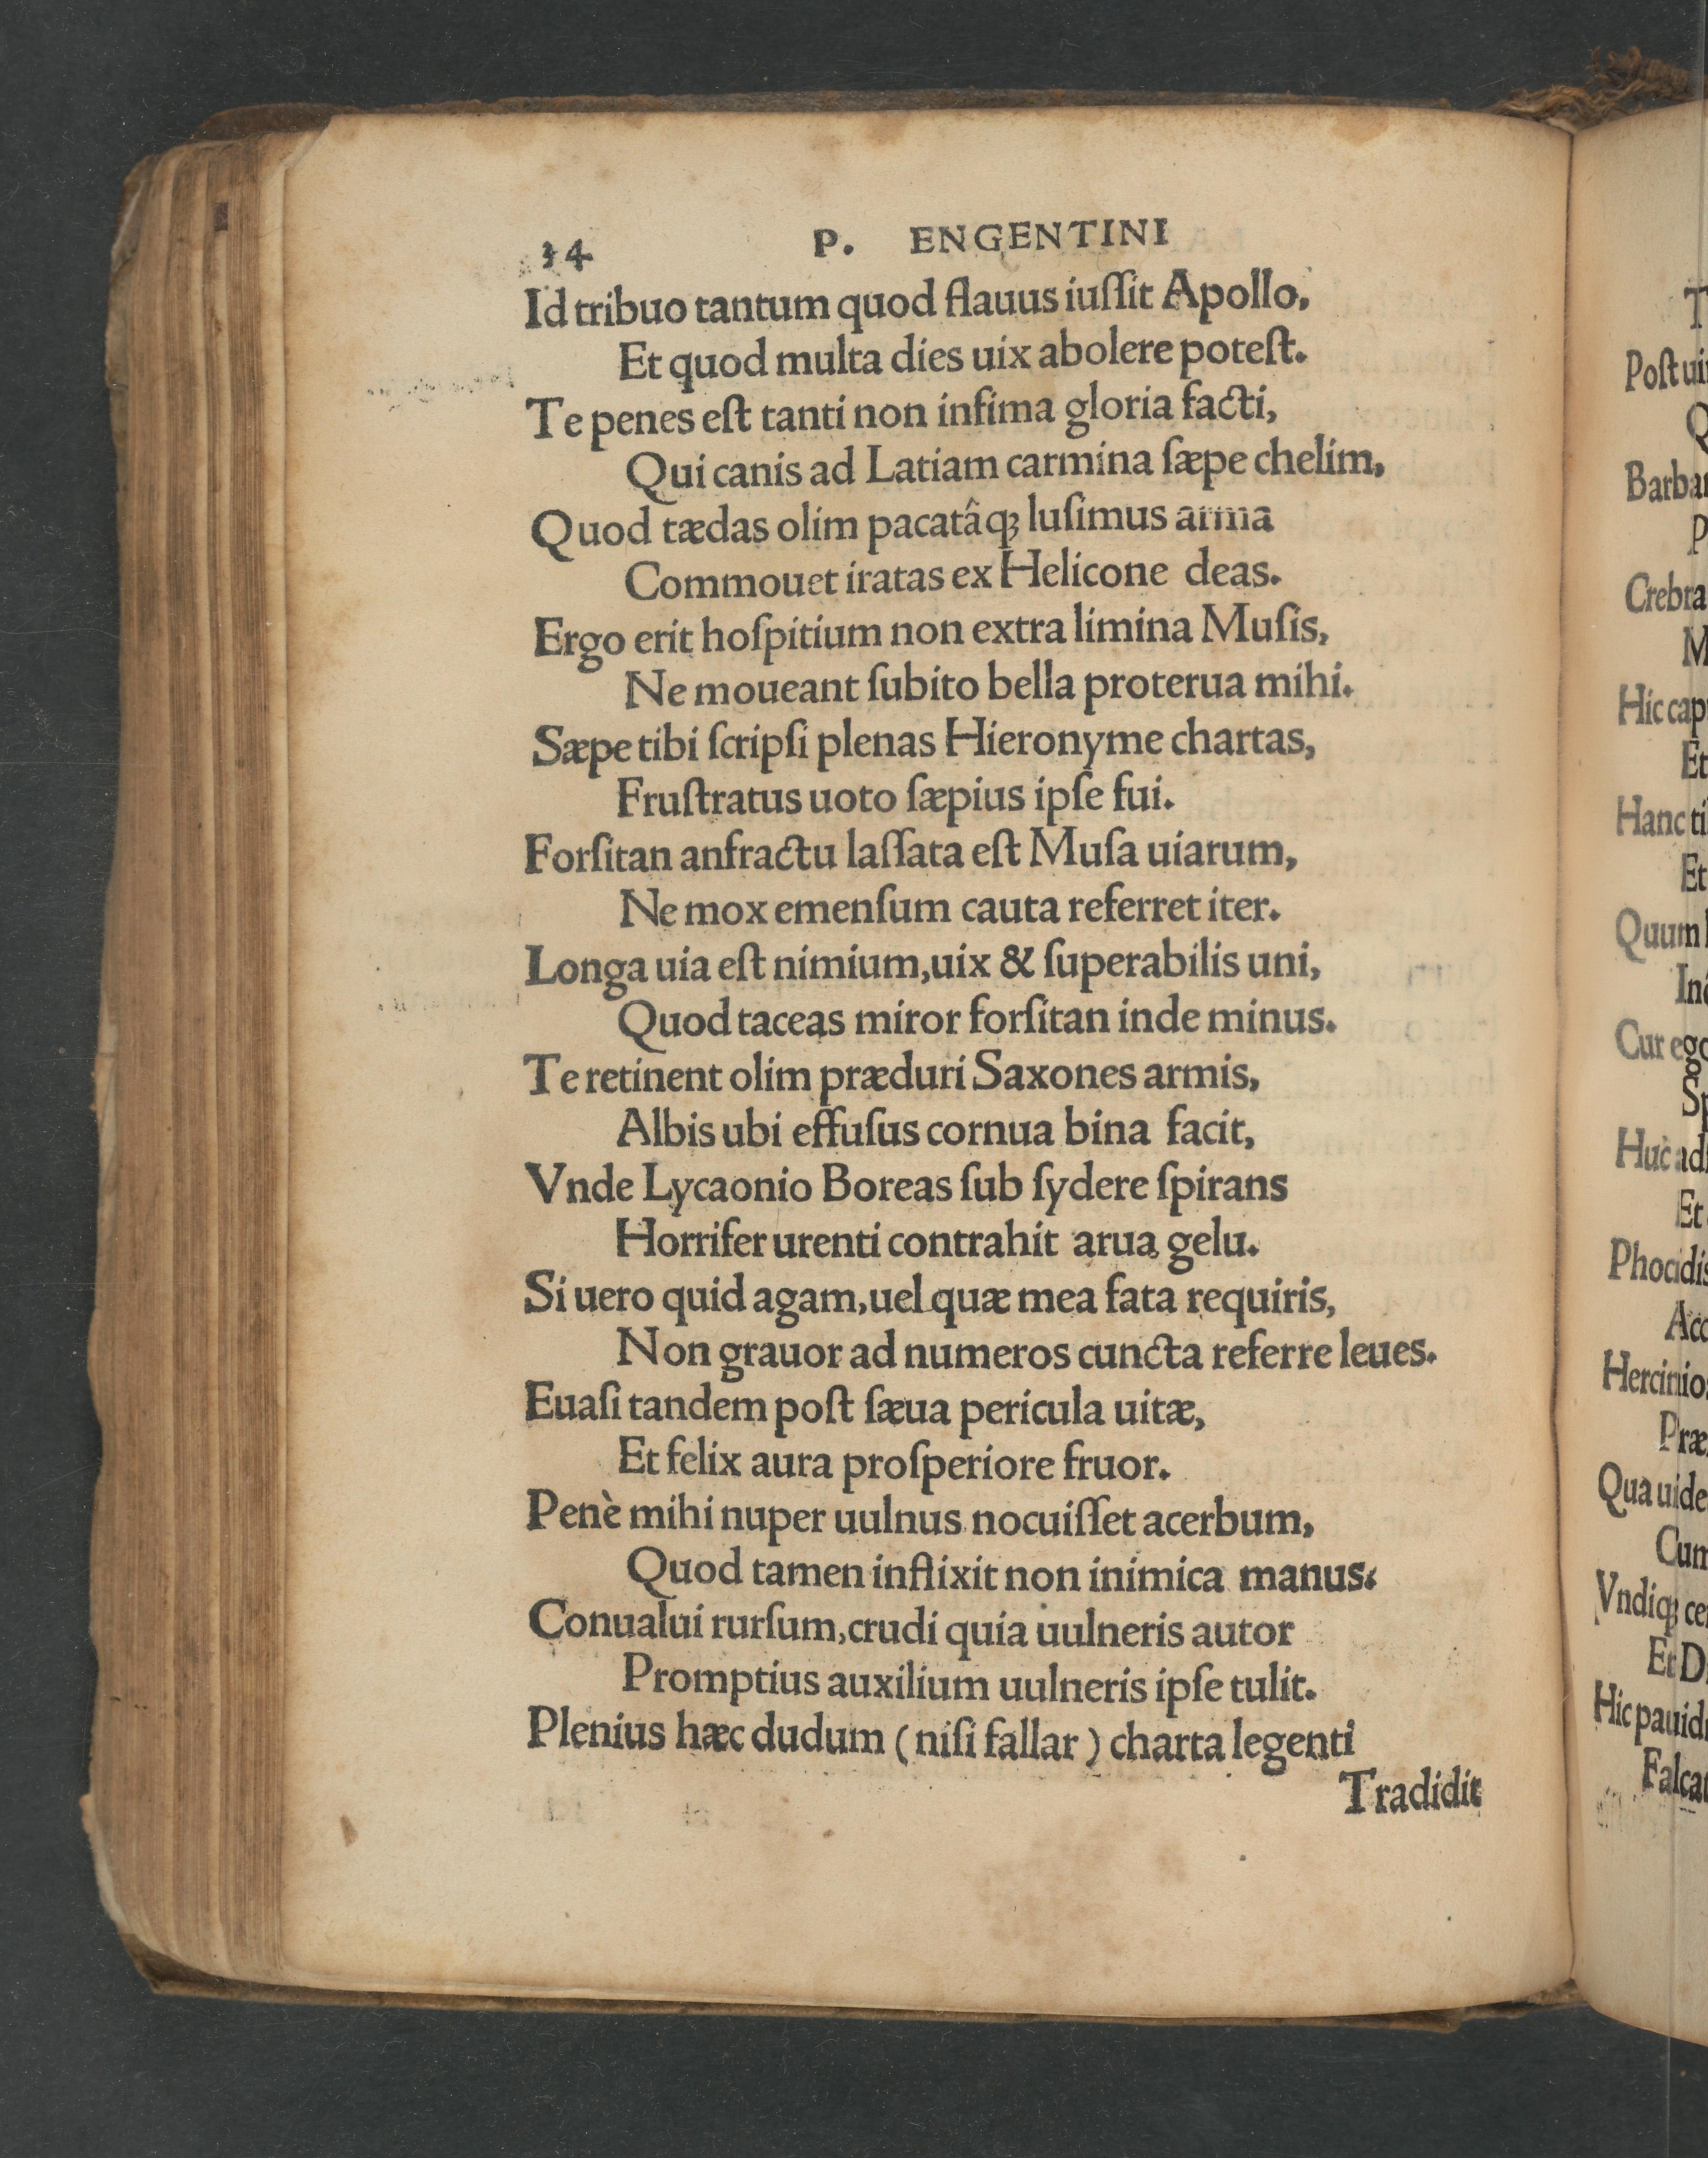 34 P. ENGENTINI
Id tribuo tantum quod flauus iuſſit Apollo,
Et quod multa dies uix abolere poteſt.
Te penes eſt tanti non infima gloria facti,
Qui canis ad Latiam carmina ſæpe chelim,
Quod tædas olim pacatâq; luſimus arma
Commouet iratas ex Helicone deas.
Ergo erit hoſpitium non extra limina Muſis,
Ne moueant ſubito bella proterua mihi.
Sæpe tibi ſcripſi plenas Hieronyme chartas,
Fruſtratus uoto ſæpius ipſe fui.
Forſitan anfractu laſſata eſt Muſa uiarum,
Ne mox emenſum cauta referret iter.
Longa uia eſt nimium, uix & ſuperabilis uni,
Quod taceas miror forſitan inde minus.
Te retinent olim præduri Saxones armis,
Albis ubi effuſus cornua bina facit,
Vnde Lycaonio Boreas ſub ſydere ſpirans
Horrifer urenti contrahit arua gelu.
Si uero quid agam, uel quæ mea fata requiris,
Non grauor ad numeros cuncta referre leues.
Euaſi tandem poſt ſæua pericula uitæ,
Et felix aura proſperiore fruor.
Penè mihi nuper uulnus nocuiſſet acerbum,
Quod tamen inflixit non inimica manus.
Conualui rurſum, crudi quia uulneris autor
Promptius auxilium uulneris ipſe tulit.
Plenius hæc dudum ( niſi fallar ) charta legenti
Tradidit
T
Poſt
Q
P
M
Hic
Et
Hanc
Et
Quum
Cur
Et
Et
Hic